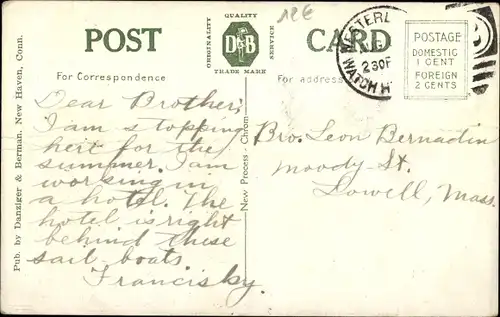 POST CARD
QUALITY
ORIGINALITY
SERVICE
D&B
TRADE MARK
12€
WESTERL
230P
WATCH H
POSTAGE
DOMESTIC
1 CENT
FOREIGN
2 CENTS
For Correspondence
For address
Dear Brother;
I am stopping
heir for the
summer. I am
working in
a hotel. The
hotel is right
behind these
sail boats
Francis ky.
Bro. Leon Bernadin
Moody St.
Lowell, Mass.
Pub. by Danziger & Berman, New Haven, Conn.
New Process - Chrom